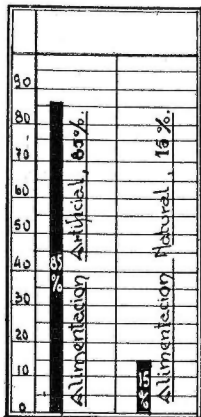 90
80
70
60
50
40
30
20
10
0
85
%
Alimentacion Artificial, 85%.
15
%
Alimentacion Natural, 15%.